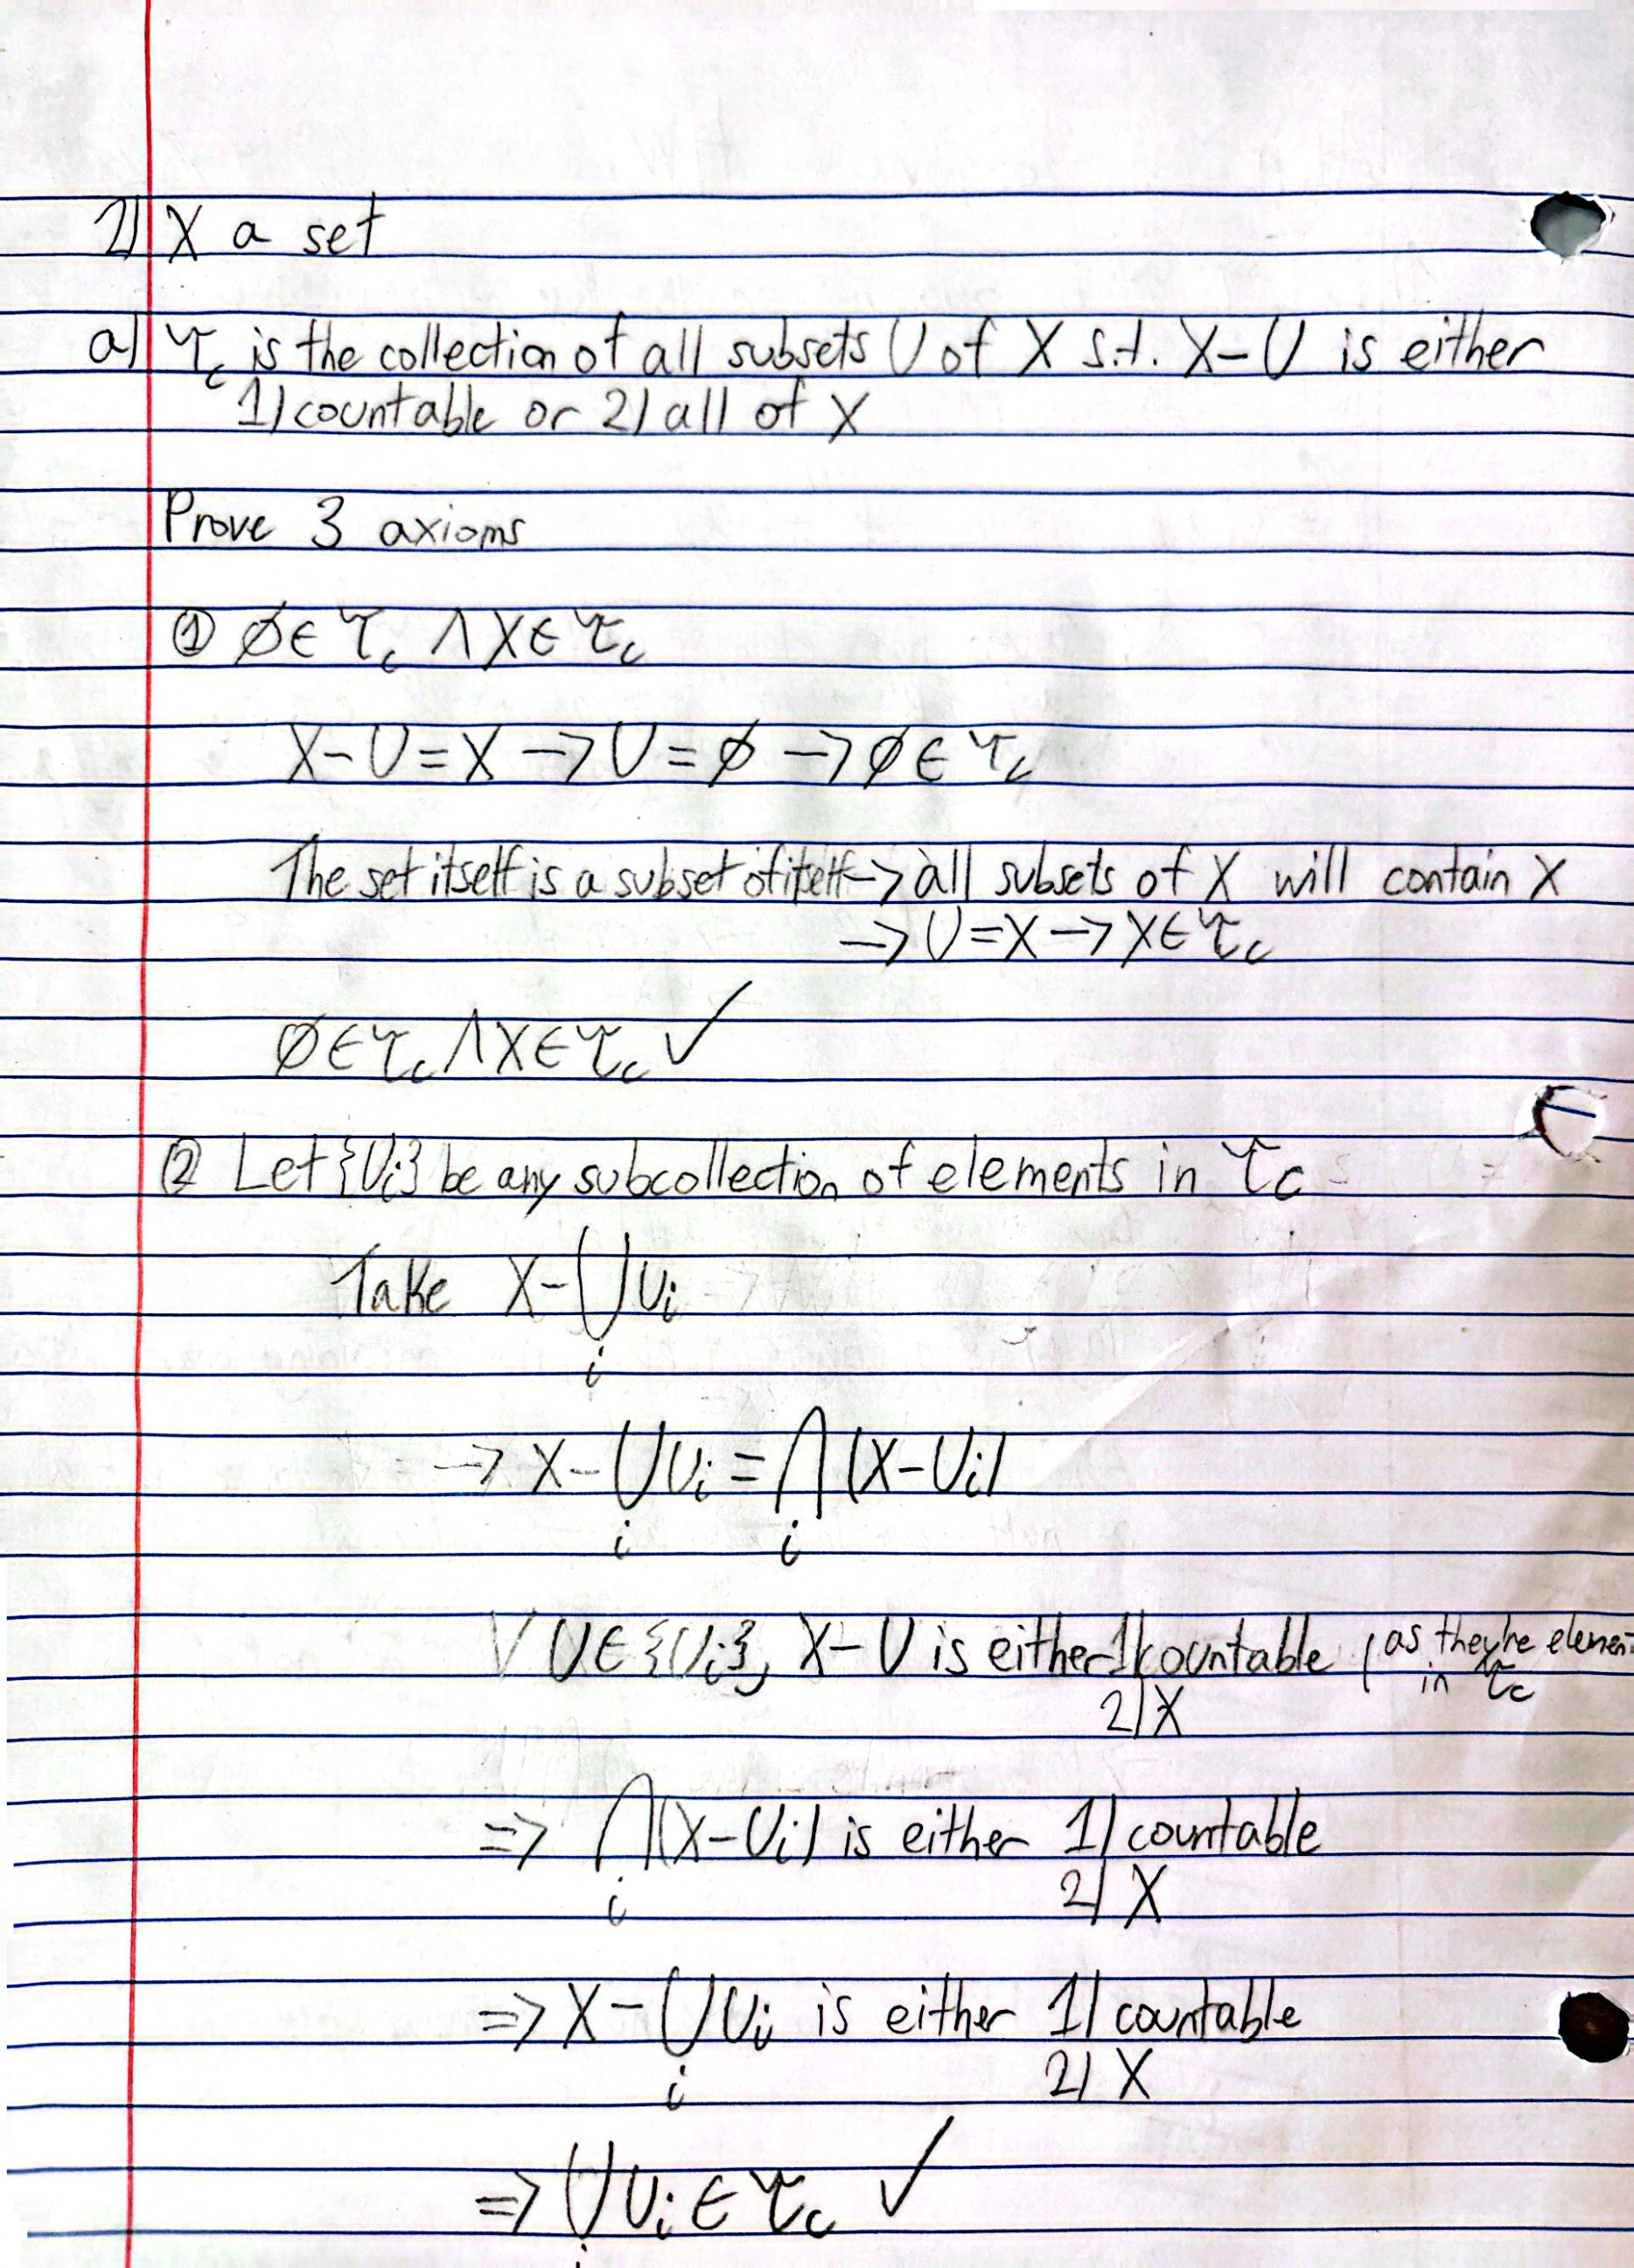 2) X a set
a) τ_c is the collection of all subsets U of X s.t. X-U is either
1) countable or 2) all of X
Prove 3 axioms
① ∅∈τ_c ∧ X∈τ_c
X-U=X → U=∅ → ∅∈τ_c
The set itself is a subset of itself → all subsets of X will contain X
→ U=X → X∈τ_c
∅∈τ_c ∧ X∈τ_c ✓
② Let {U_i} be any subcollection of elements in τ_c
Take X-⋃_i U_i
→ X-⋃_i U_i = ⋂_i (X-U_i)
∀ U∈{U_i}, X-U is either 1) countable (as they're element
2) X in τ_c
⇒ ⋂_i (X-U_i) is either 1) countable
2) X
⇒ X-⋃_i U_i is either 1) countable
2) X
⇒ ⋃_i U_i ∈ τ_c ✓